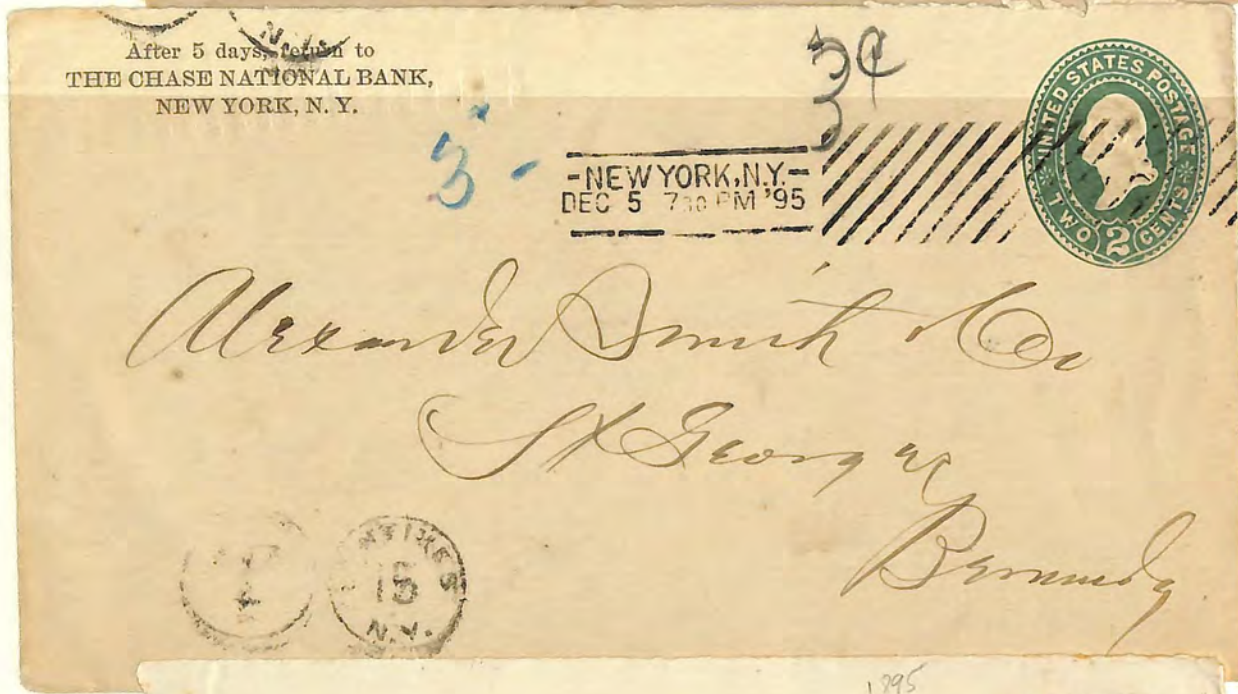 After 5 days, return to
THE CHASE NATIONAL BANK,
NEW YORK, N. Y.
N.Y.
3¢
3
5 -
-NEW YORK, N.Y.-
DEC 5 730 PM '95
UNITED STATES POSTAGE
TWO 2 CENTS
Alexander Smith & Co
St Georges
Bermuda
15
N.Y.
1895